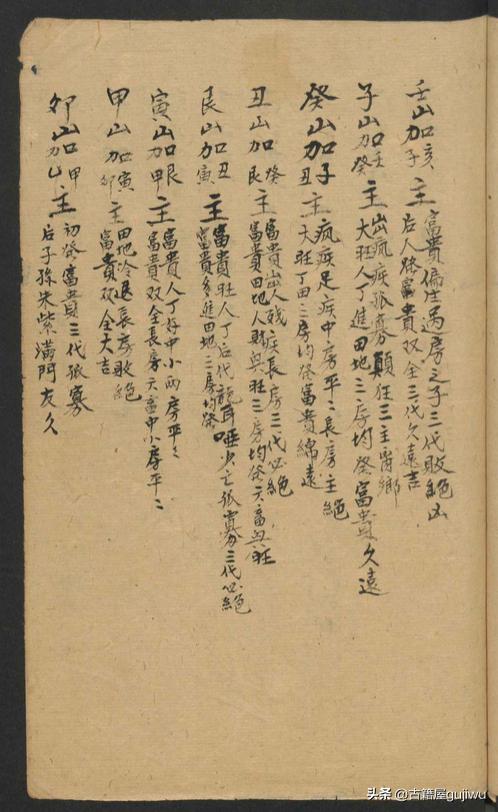 壬山加亥子主富貴偏生過房之子三代敗絕凶
后人發富貴双全三代久遠吉
子山加壬癸主出瘋疾孤寡顛狂三主离鄉
大旺人丁進田地三房均發富貴久遠
癸山加子丑主瘋疾足疾中房平〻長房主絕
大旺丁田三房均發富貴綿遠
丑山加癸艮主富貴出人殘疾長房三代必絕
富貴田地人財興旺三房均發六畜興旺
艮山加丑寅主富貴旺人丁后代聾耳啞少亡孤寡三代必絕
富貴多進田地三房均發
寅山加艮甲主富貴人丁好中小兩房平〻
富貴双全長房六畜中小房平〻
甲山加寅卯主田地冷退長房敗絕
富貴双全大吉
卯山加甲乙主初發富貴三代孤寡
后子孫朱紫滿門友久
头条 @古籍屋gujiwu